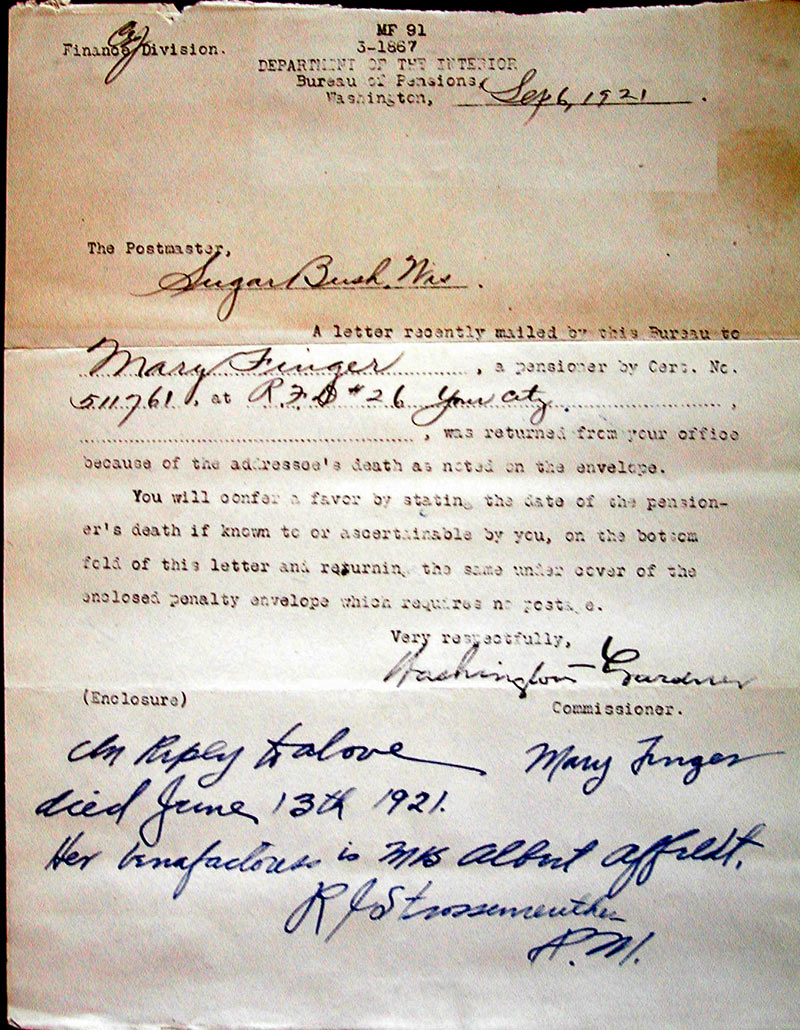 MF 91
Finance Division.
3-1867
DEPARTMENT OF THE INTERIOR
Bureau of Pensions,
Washington, Sep 6, 1921.
The Postmaster,
Sugar Bush, Wis.
A letter recently mailed by this Bureau to
Mary Finger, a pensioner by Cert. No.
511761, at R.F.D #26 Your City,
, was returned from your office
because of the addressee's death as noted on the envelope.
You will confer a favor by stating the date of the pension-
er's death if known to or ascertainable by you, on the bottom
fold of this letter and returning the same under cover of the
enclosed penalty envelope which requires no postage.
Very respectfully,
Washington Gardner
(Enclosure)
Commissioner.
In Reply to above Mary Finger
died June 13th 1921.
Her benafactoress is Mrs Albert Affeldt.
R J
P.M.